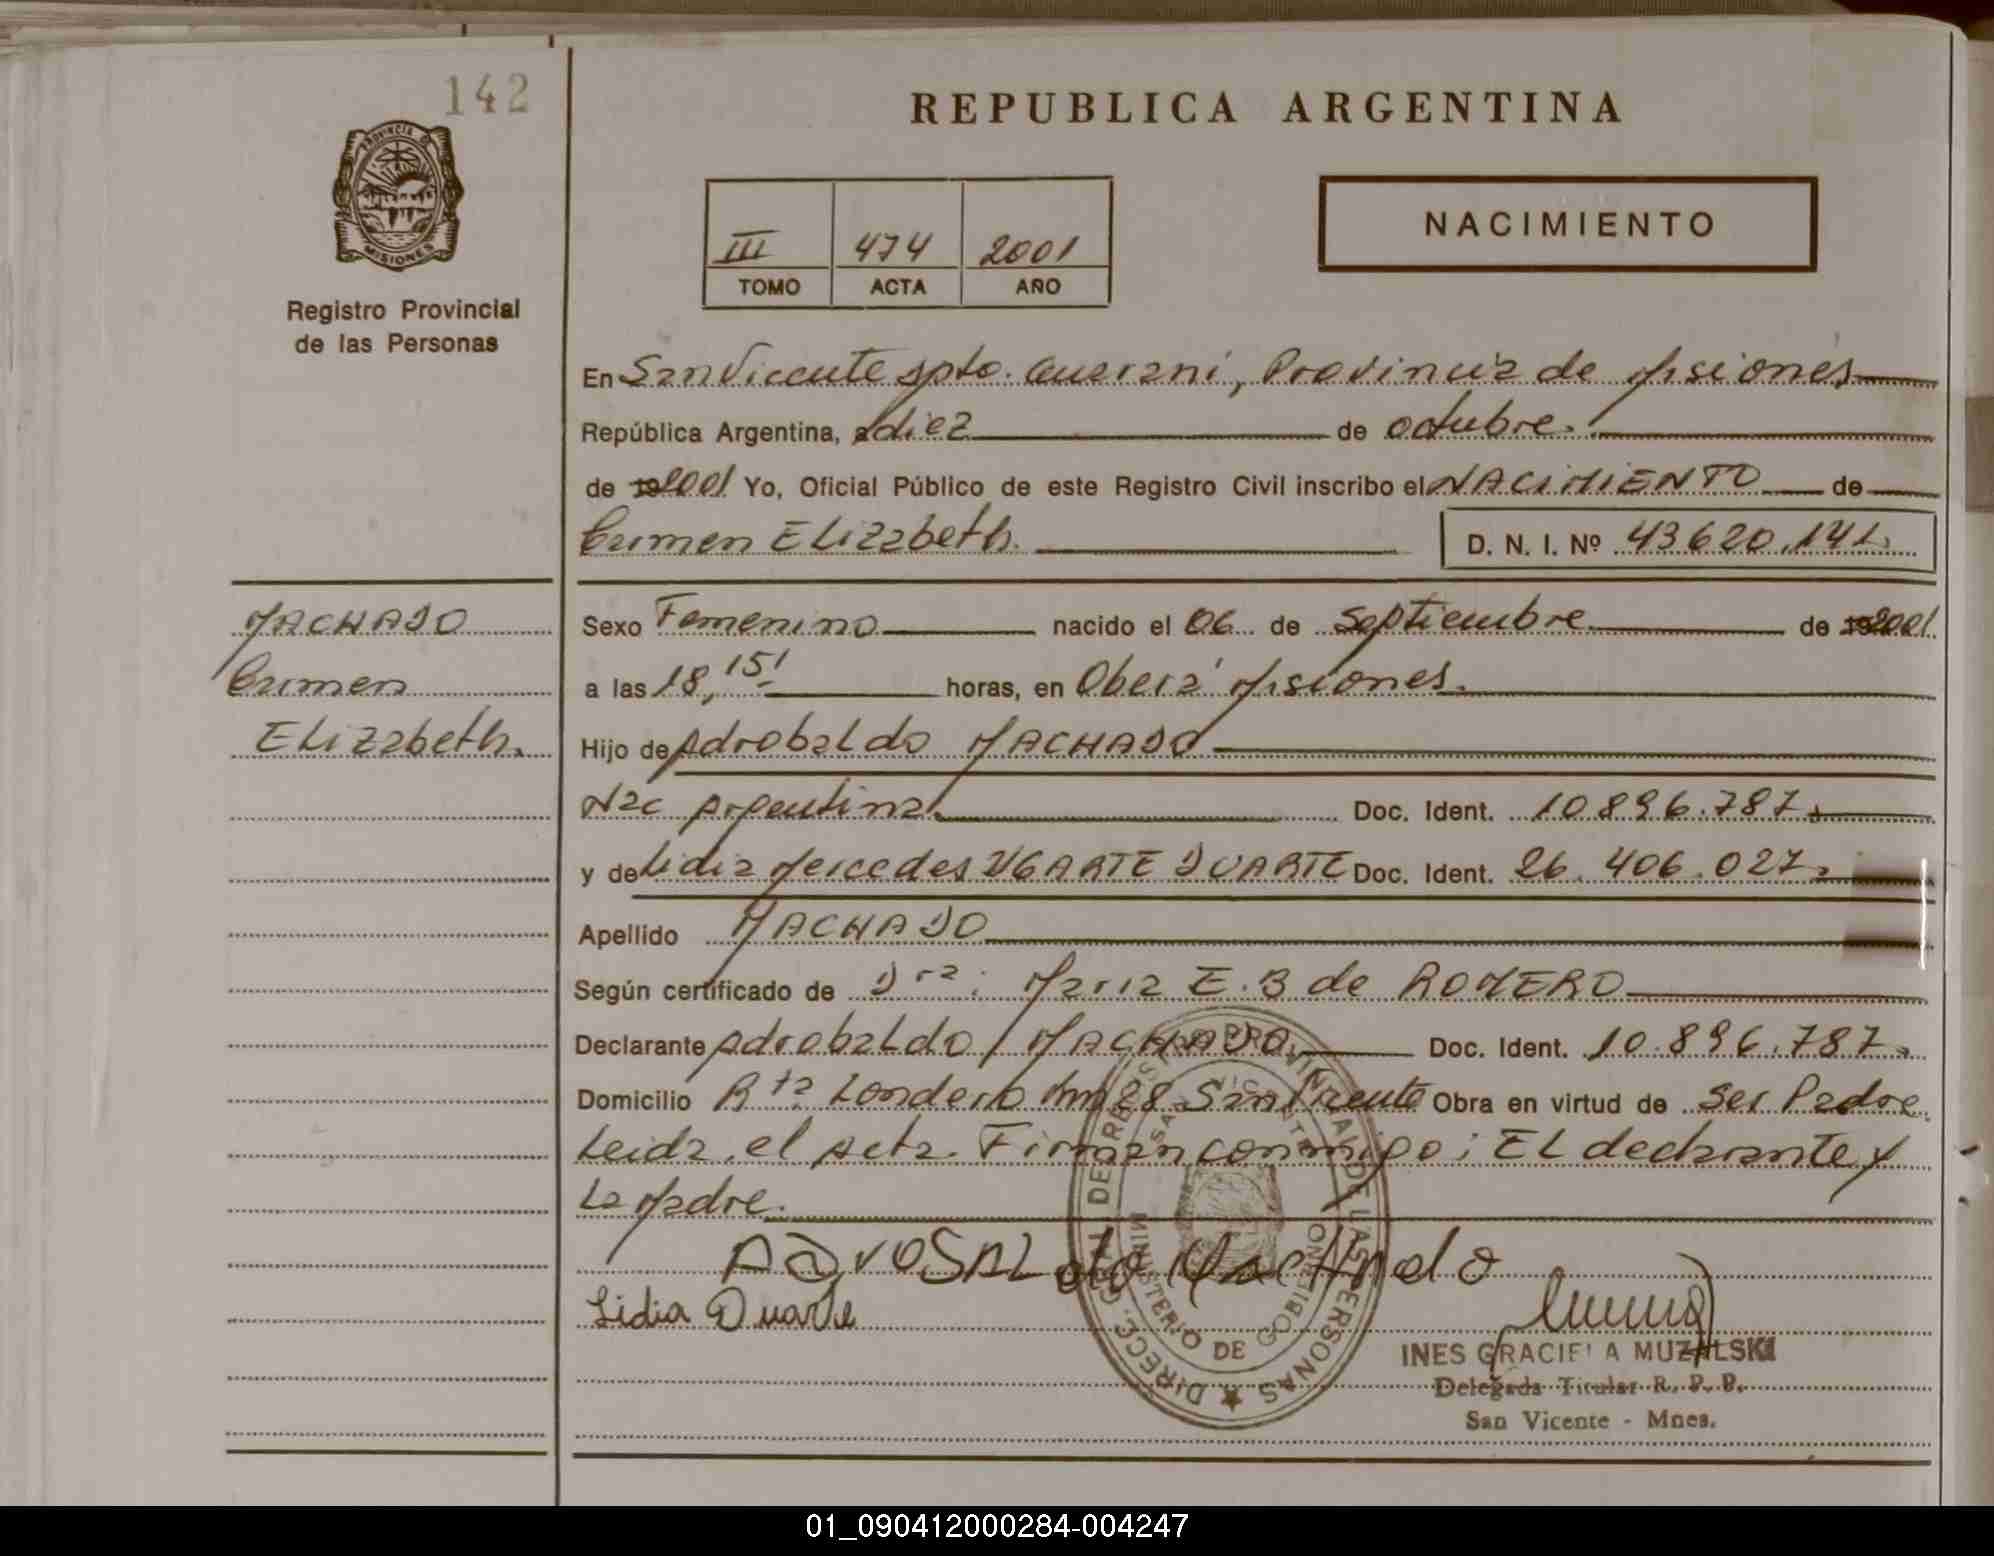 142
REPUBLICA ARGENTINA
PROVINCIA DE
MISIONES
Registro Provincial
de las Personas
III 474 2001
TOMO ACTA AÑO
NACIMIENTO
En San Vicente Dpto. Guarani, Provincia de Misiones
República Argentina, a diez de octubre.
de 2001 Yo, Oficial Público de este Registro Civil inscribo el NACIMIENTO de
Carmen Elizabeth. D. N. I. Nº 43.620.141.
MACHADO
Carmen
Elizabeth.
Sexo Femenino nacido el 06 de Septiembre de 2001.
a las 18,15! horas, en Oberá Misiones.
Hijo de Adrobaldo MACHADO
Nac Argentina. Doc. Ident. 10.896.787.
y de Lidia Mercedes UGARTE DUARTE Doc. Ident. 26.406.027.
Apellido MACHADO
Según certificado de Dra: Maria E.B de ROMERO
Declarante Adrobaldo MACHADO. Doc. Ident. 10.896.787.
Domicilio Rta Londero km 28 San Vicente Obra en virtud de Ser Padre.
Leida el Acta. Firman conmigo: El declarante y
La Madre.
ADROBALdo MacHAdo
Lidia Duarte
DIRECC. GRAL. DE REGISTRO PROVINCIAL DE LAS PERSONAS
SAN VICENTE
MINISTERIO DE GOBIERNO
INES GRACIELA MUZALSKI
Delegada Titular R. P. P.
San Vicente - Mnes.
01_090412000284-004247